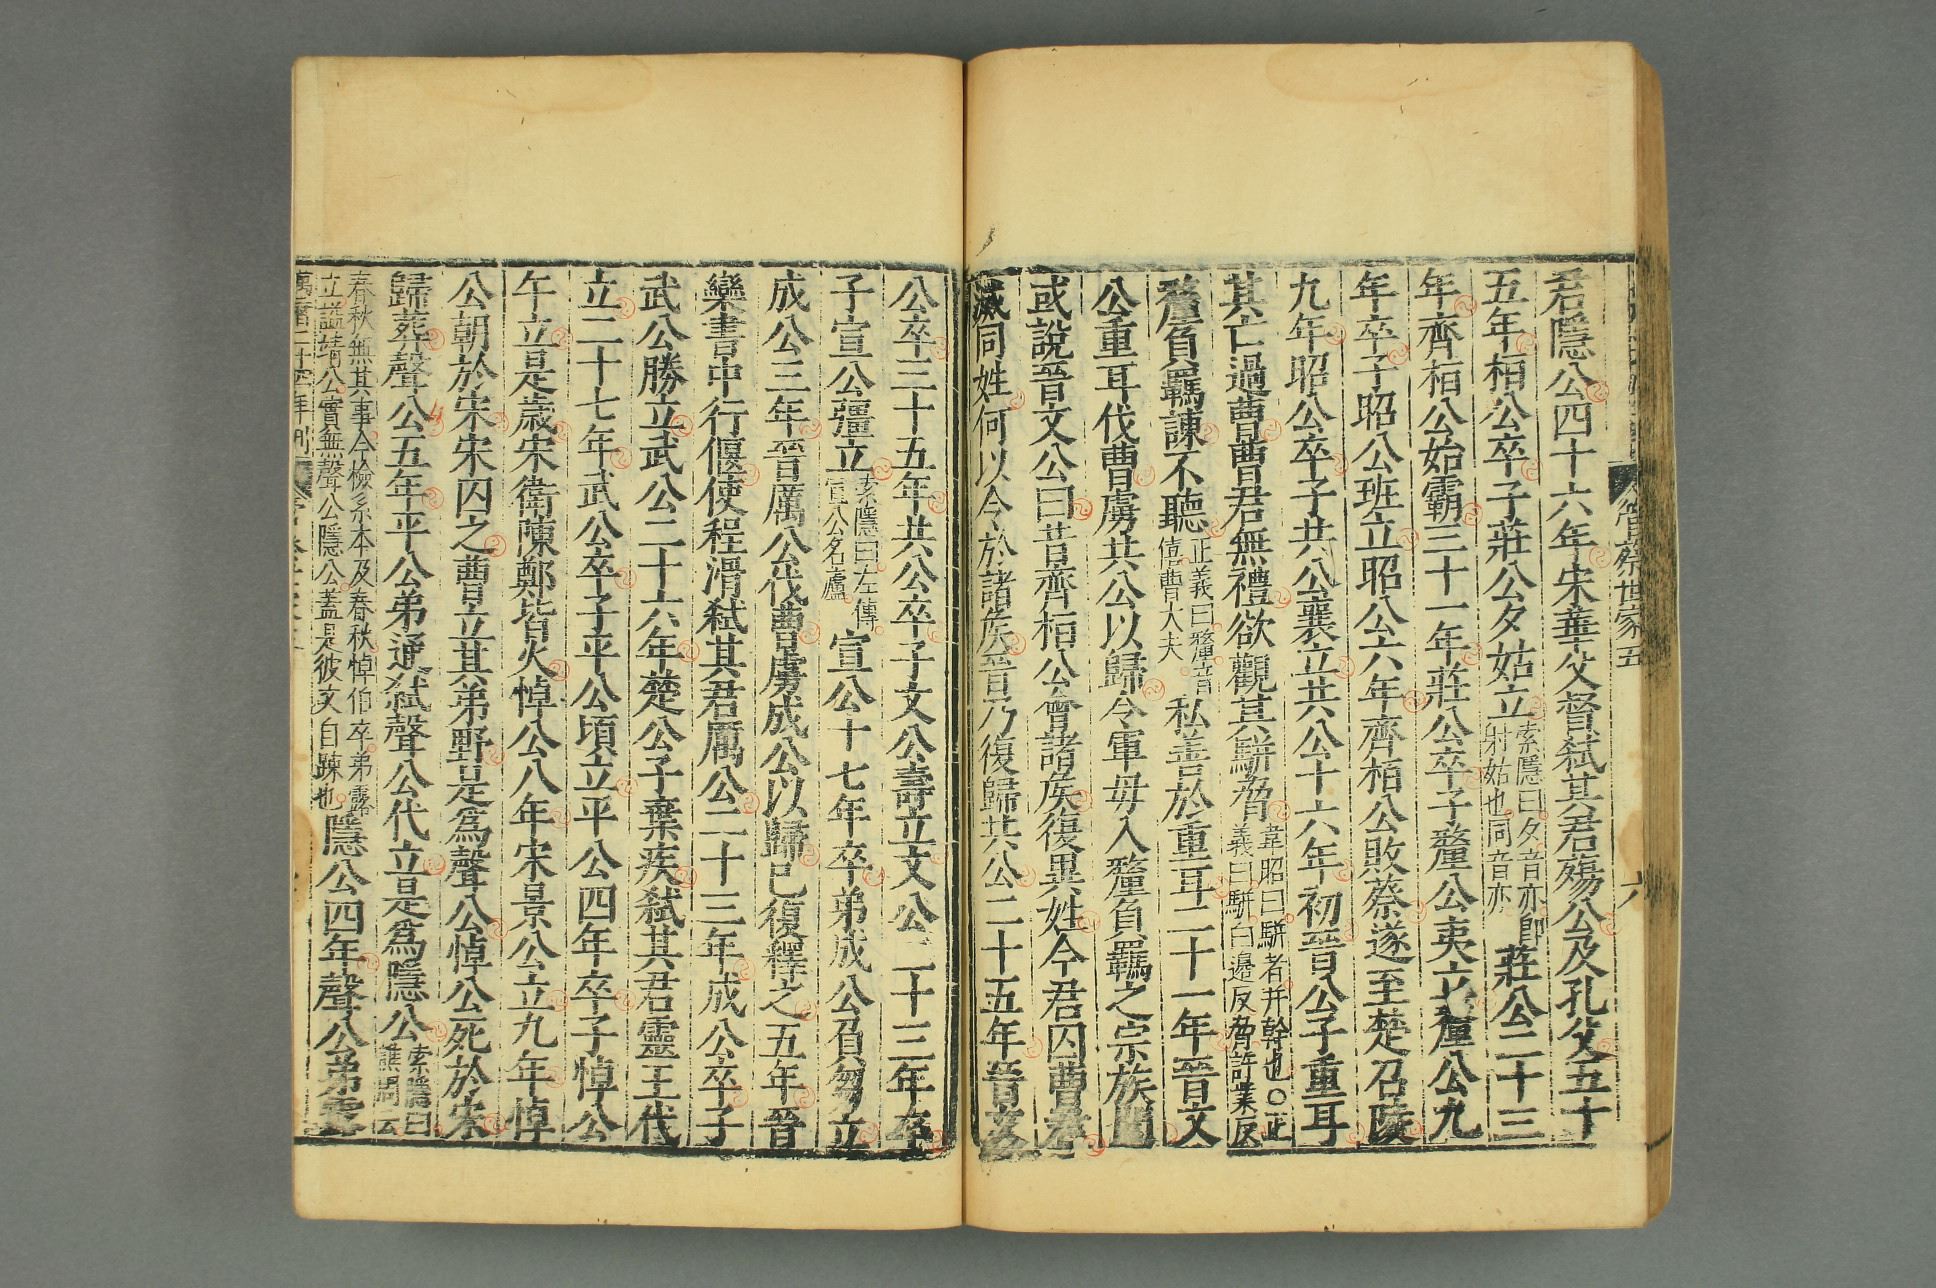 管蔡世家五
六
君隱公四十六年宋華父督弒其君殤公及孔父五十
五年桓公卒子莊公夕姑立索隱曰夕音亦即射姑也同音亦莊公二十三
年齊桓公始霸三十一年莊公卒子釐公夷立釐公九
年卒子昭公班立昭公六年齊桓公敗蔡遂至楚召陵
九年昭公卒子共公襄立共公十六年初晉公子重耳
其亡過曹曹君無禮欲觀其駢脅韋昭曰駢者并幹也○正義曰駢白邊反脅許業反
釐負羈諫不聽正義曰釐音僖曹大夫私善於重耳二十一年晉文
公重耳伐曹虜共公以歸令軍毋入釐負羈之宗族閭
或說晉文公曰昔齊桓公會諸侯復異姓今君囚曹君
滅同姓何以令於諸侯晉乃復歸共公二十五年晉文
公卒三十五年共公卒子文公壽立文公二十三年卒
子宣公彊立索隱曰左傳宣公名廬宣公十七年卒弟成公負芻立
成公三年晉厲公伐曹虜成公以歸已復釋之五年晉
欒書中行偃使程滑弒其君厲公二十三年成公卒子
武公勝立武公二十六年楚公子棄疾弒其君靈王代
立二十七年武公卒子平公頃立平公四年卒子悼公
午立是歲宋衛陳鄭皆火悼公八年宋景公立九年悼
公朝於宋宋囚之曹立其弟野是為聲公悼公死於宋
歸葬聲公五年平公弟通弒聲公代立是為隱公索隱曰譙周云
春秋無其事今檢系本及春秋悼伯卒弟露立諡靖公實無聲公隱公蓋是彼文自疎也隱公四年聲公弟露